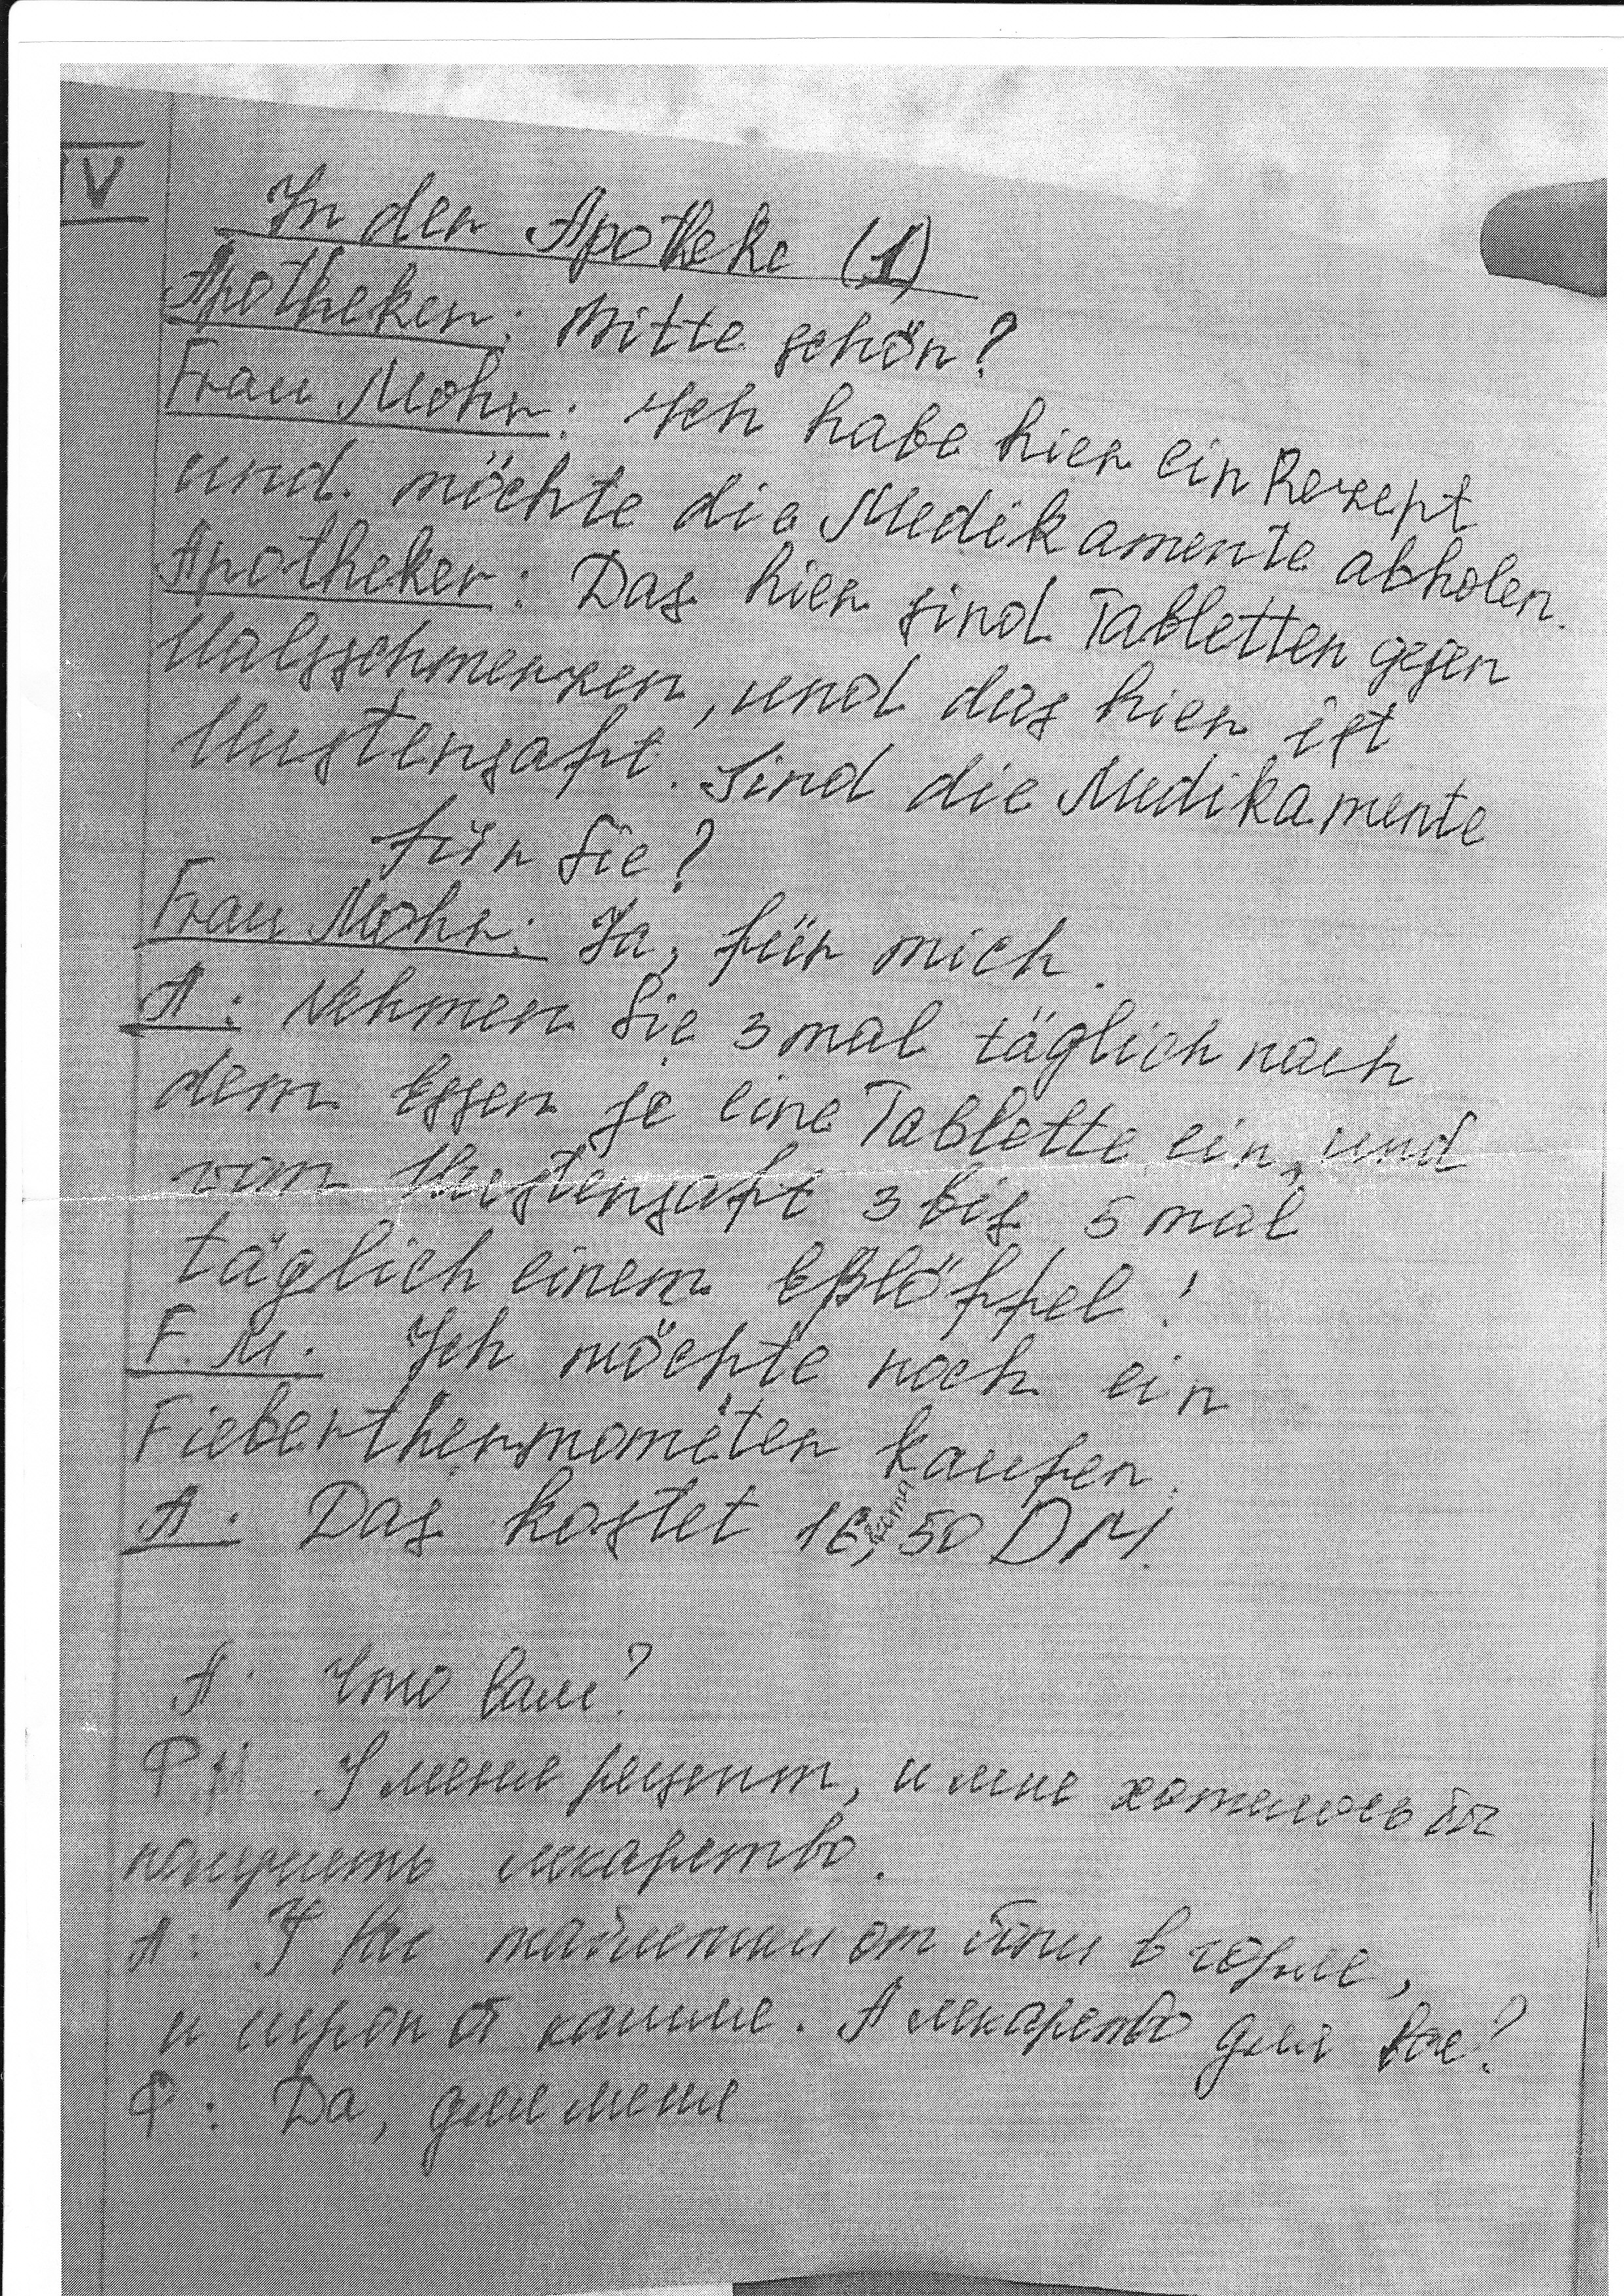 IV
In der Apotheke (1)
Apotheker: Bitte schön?
Frau Mohr: Ich habe hier ein Rezept
und möchte die Medikamente abholen.
Apotheker: Das hier sind Tabletten gegen
Halsschmerzen, und das hier ist
Hustensaft. Sind die Medikamente
für Sie?
Frau Mohr: Ja, für mich.
A: Nehmen Sie 3 mal täglich nach
dem Essen je eine Tablette ein, und
vom Hustensaft 3 bis 5 mal
täglich einem Eßlöffel!
F. M. Ich möchte noch ein
Fieberthermometer kaufen.
A: Das kostet 16,50 DM.
А: Что вам?
Ф.М У меня рецепт, и мне хотелось бы
получить лекарство.
А: У Вас таблетки от боли в горле,
и сироп от кашля. А лекарство для Вас?
Ф: Да, для меня